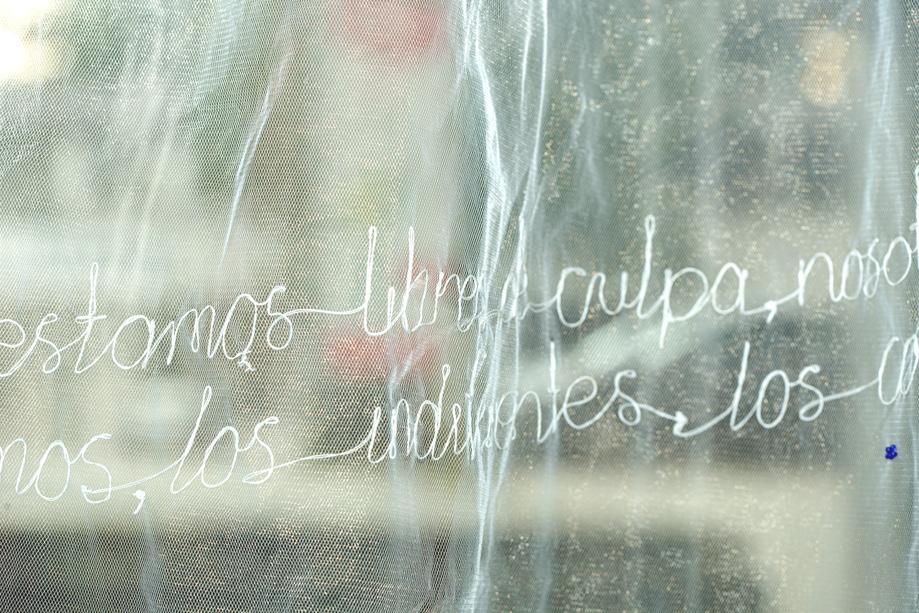 estamos libre de culpa, noso
nos, los indolentes, los co